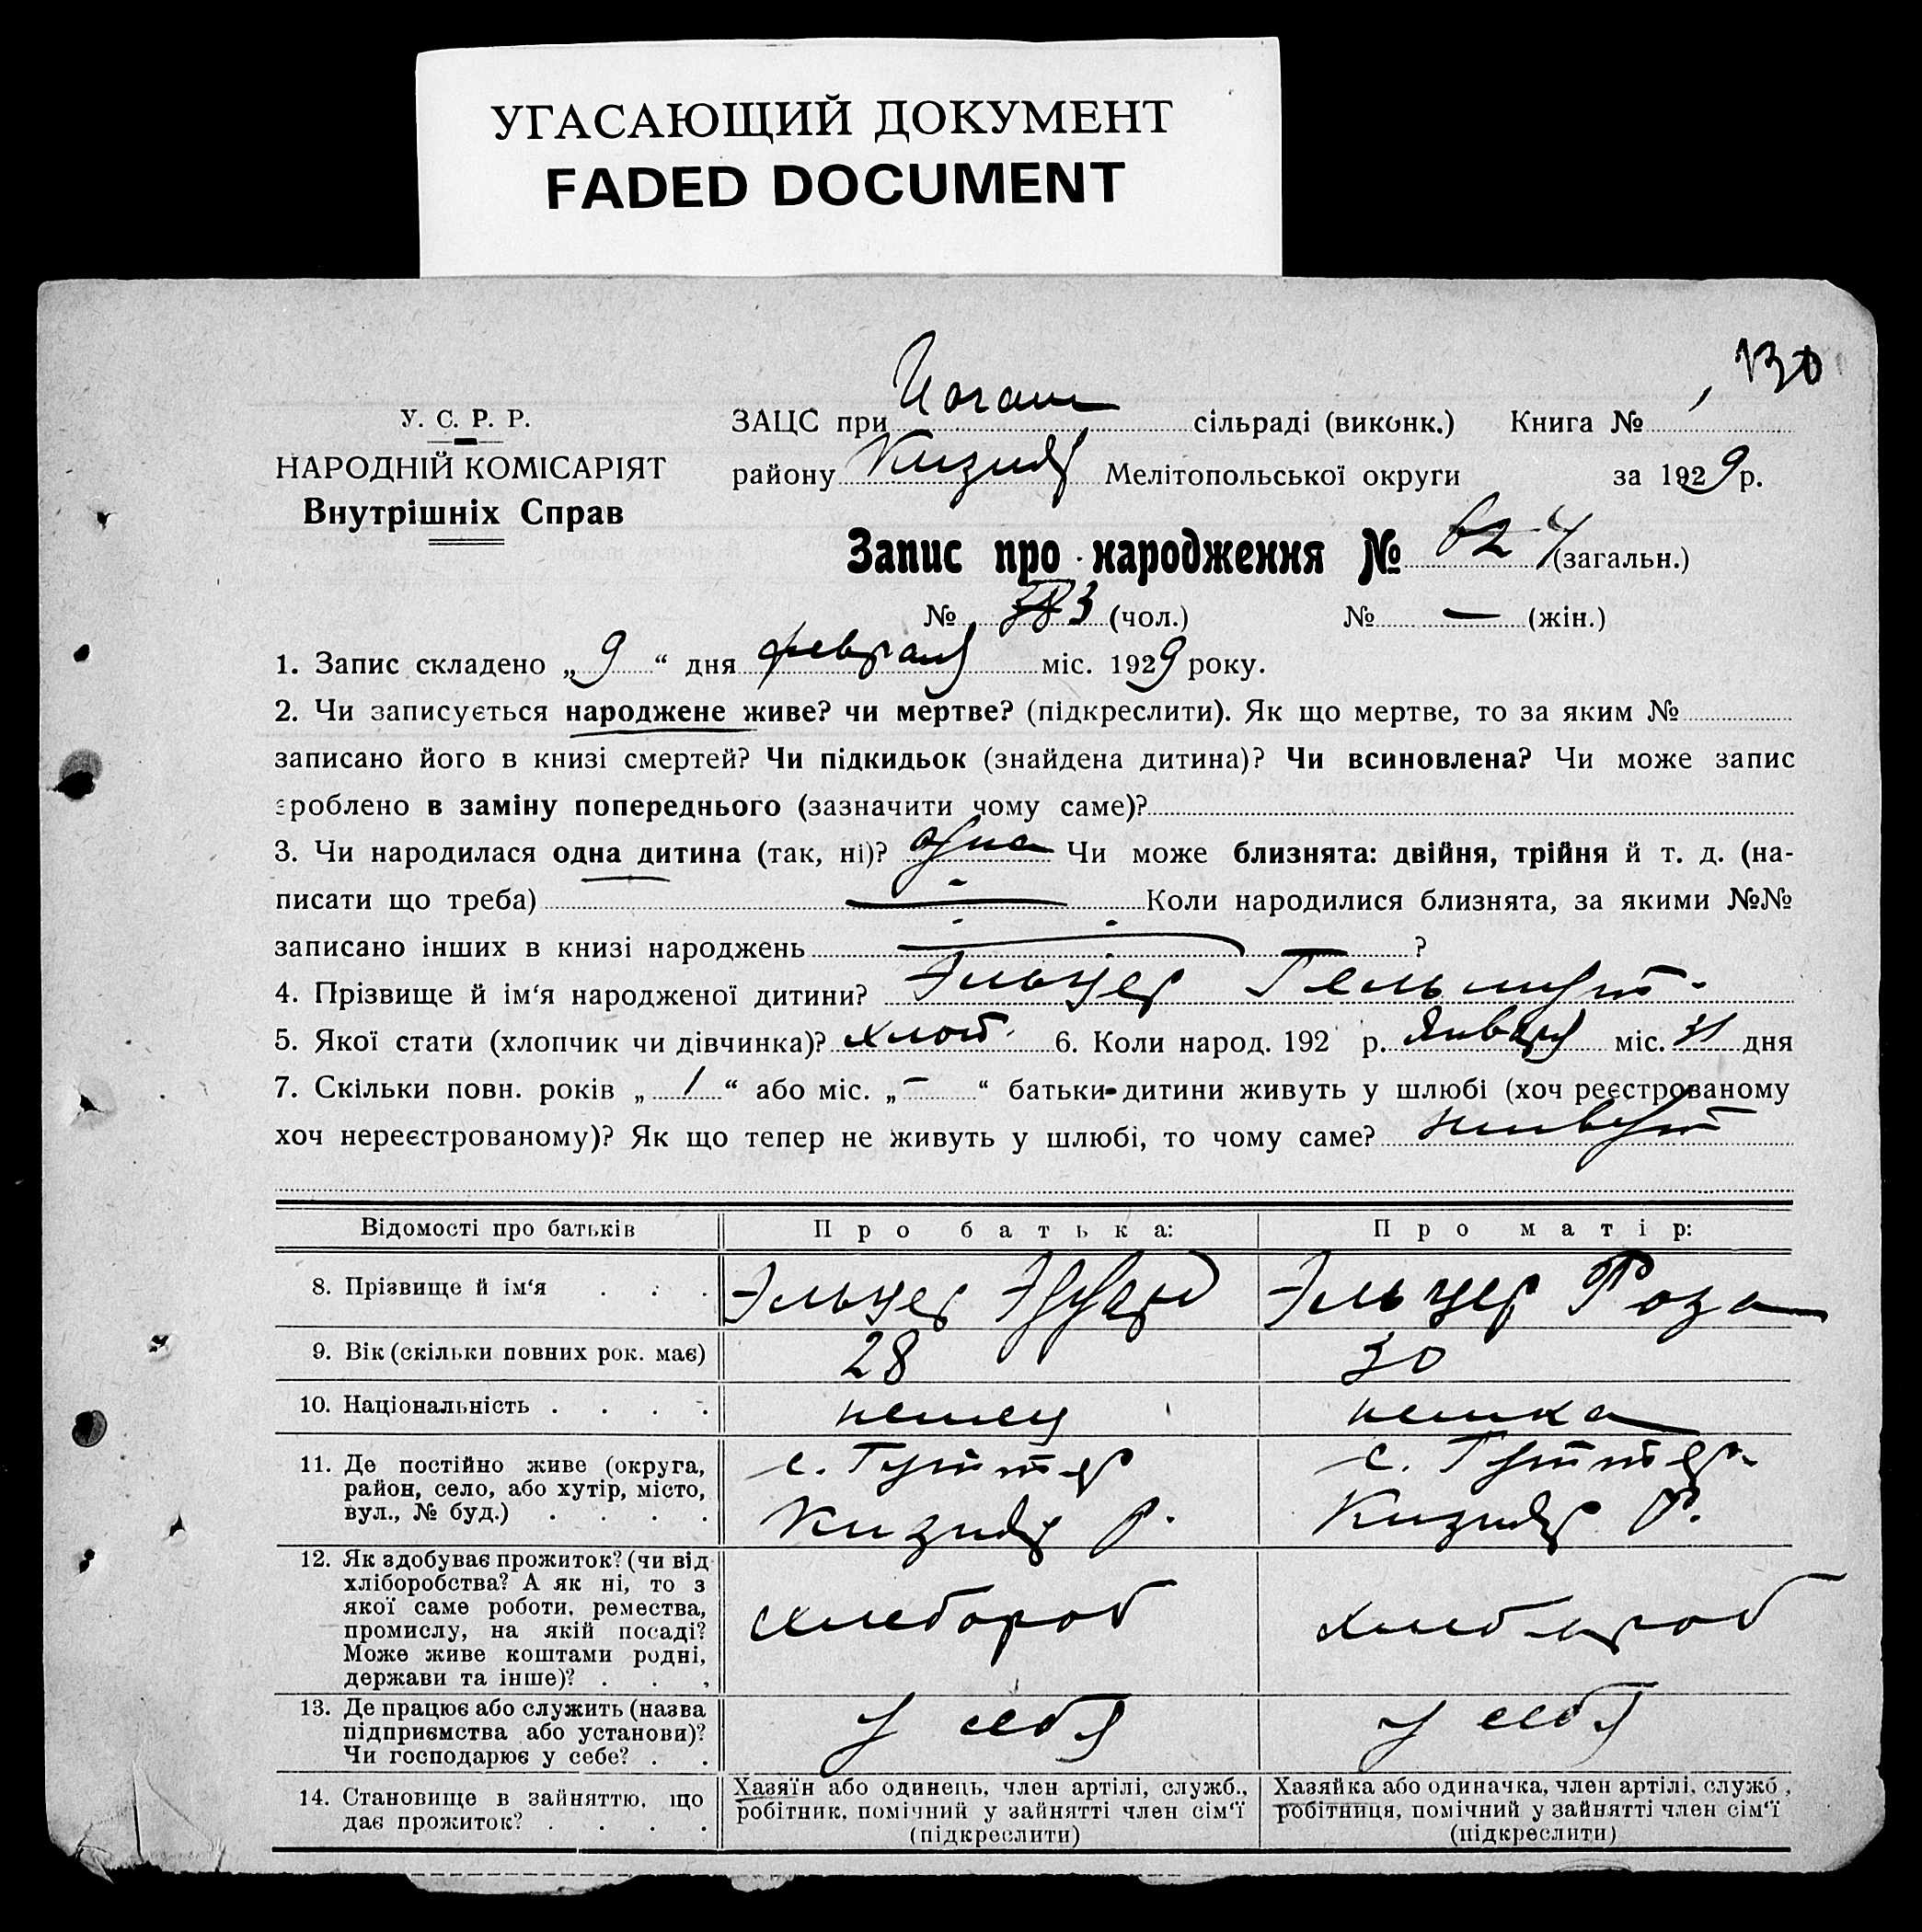 УГАСАЮЩИЙ ДОКУМЕНТ
FADED DOCUMENT
130
У. С. Р. Р.
НАРОДНІЙ КОМІСАРІЯТ
Внутрішніх Справ
ЗАЦС при сільраді (виконк.) Книга №
району Мелітопольської округи за 1929 р.
Запис про народження № (загальн.)
№ (чол.) № — (жін.)
1. Запис складено „9“ дня февраля міс. 1929 року.
2. Чи записується народжене живе? чи мертве? (підкреслити). Як що мертве, то за яким №
записано його в книзі смертей? Чи підкидьок (знайдена дитина)? Чи всиновлена? Чи може запис
зроблено в заміну попереднього (зазначити чому саме)?
3. Чи народилася одна дитина (так, ні)? одна Чи може близнята: двійня, трійня й т. д. (на-
писати що треба) Коли народилися близнята, за якими №№
записано інших в книзі народжень ?
4. Прізвище й ім'я народженої дитини? Эльцер Гельмут
5. Якої стати (хлопчик чи дівчинка)? хлоп. 6. Коли народ. 192 р. января міс. 31 дня
7. Скільки повн. років „1“ або міс. „–“ батьки дитини живуть у шлюбі (хоч реєстрованому
хоч нереєстрованому)? Як що тепер не живуть у шлюбі, то чому саме? живут
Відомості про батьків Про батька: Про матір:
8. Прізвище й ім'я Эльцер Эдуард Эльцер Роза
9. Вік (скільки повних рок. має) 28 30
10. Національність немец немка
11. Де постійно живе (округа, район, село, або хутір, місто, вул., № буд.) с. Гуттер с. Гуттер.
Р. Р.
12. Як здобуває прожиток? (чи від
хліборобства? А як ні, то з
якої саме роботи, ремества,
промислу, на якій посаді?
Може живе коштами родні,
держави та інше)? хлебороб хлебороб
13. Де працює або служить (назва
підприємства або установи)?
Чи господарює у себе? у себя у себя
14. Становище в зайняттю, що
дає прожиток?
Хазяїн або одинець, член артілі, служб.,
робітник, помічний у зайнятті член сім'ї
(підкреслити)
Хазяйка або одиначка, член артілі, служб.,
робітниця, помічний у зайнятті член сім'ї
(підкреслити)